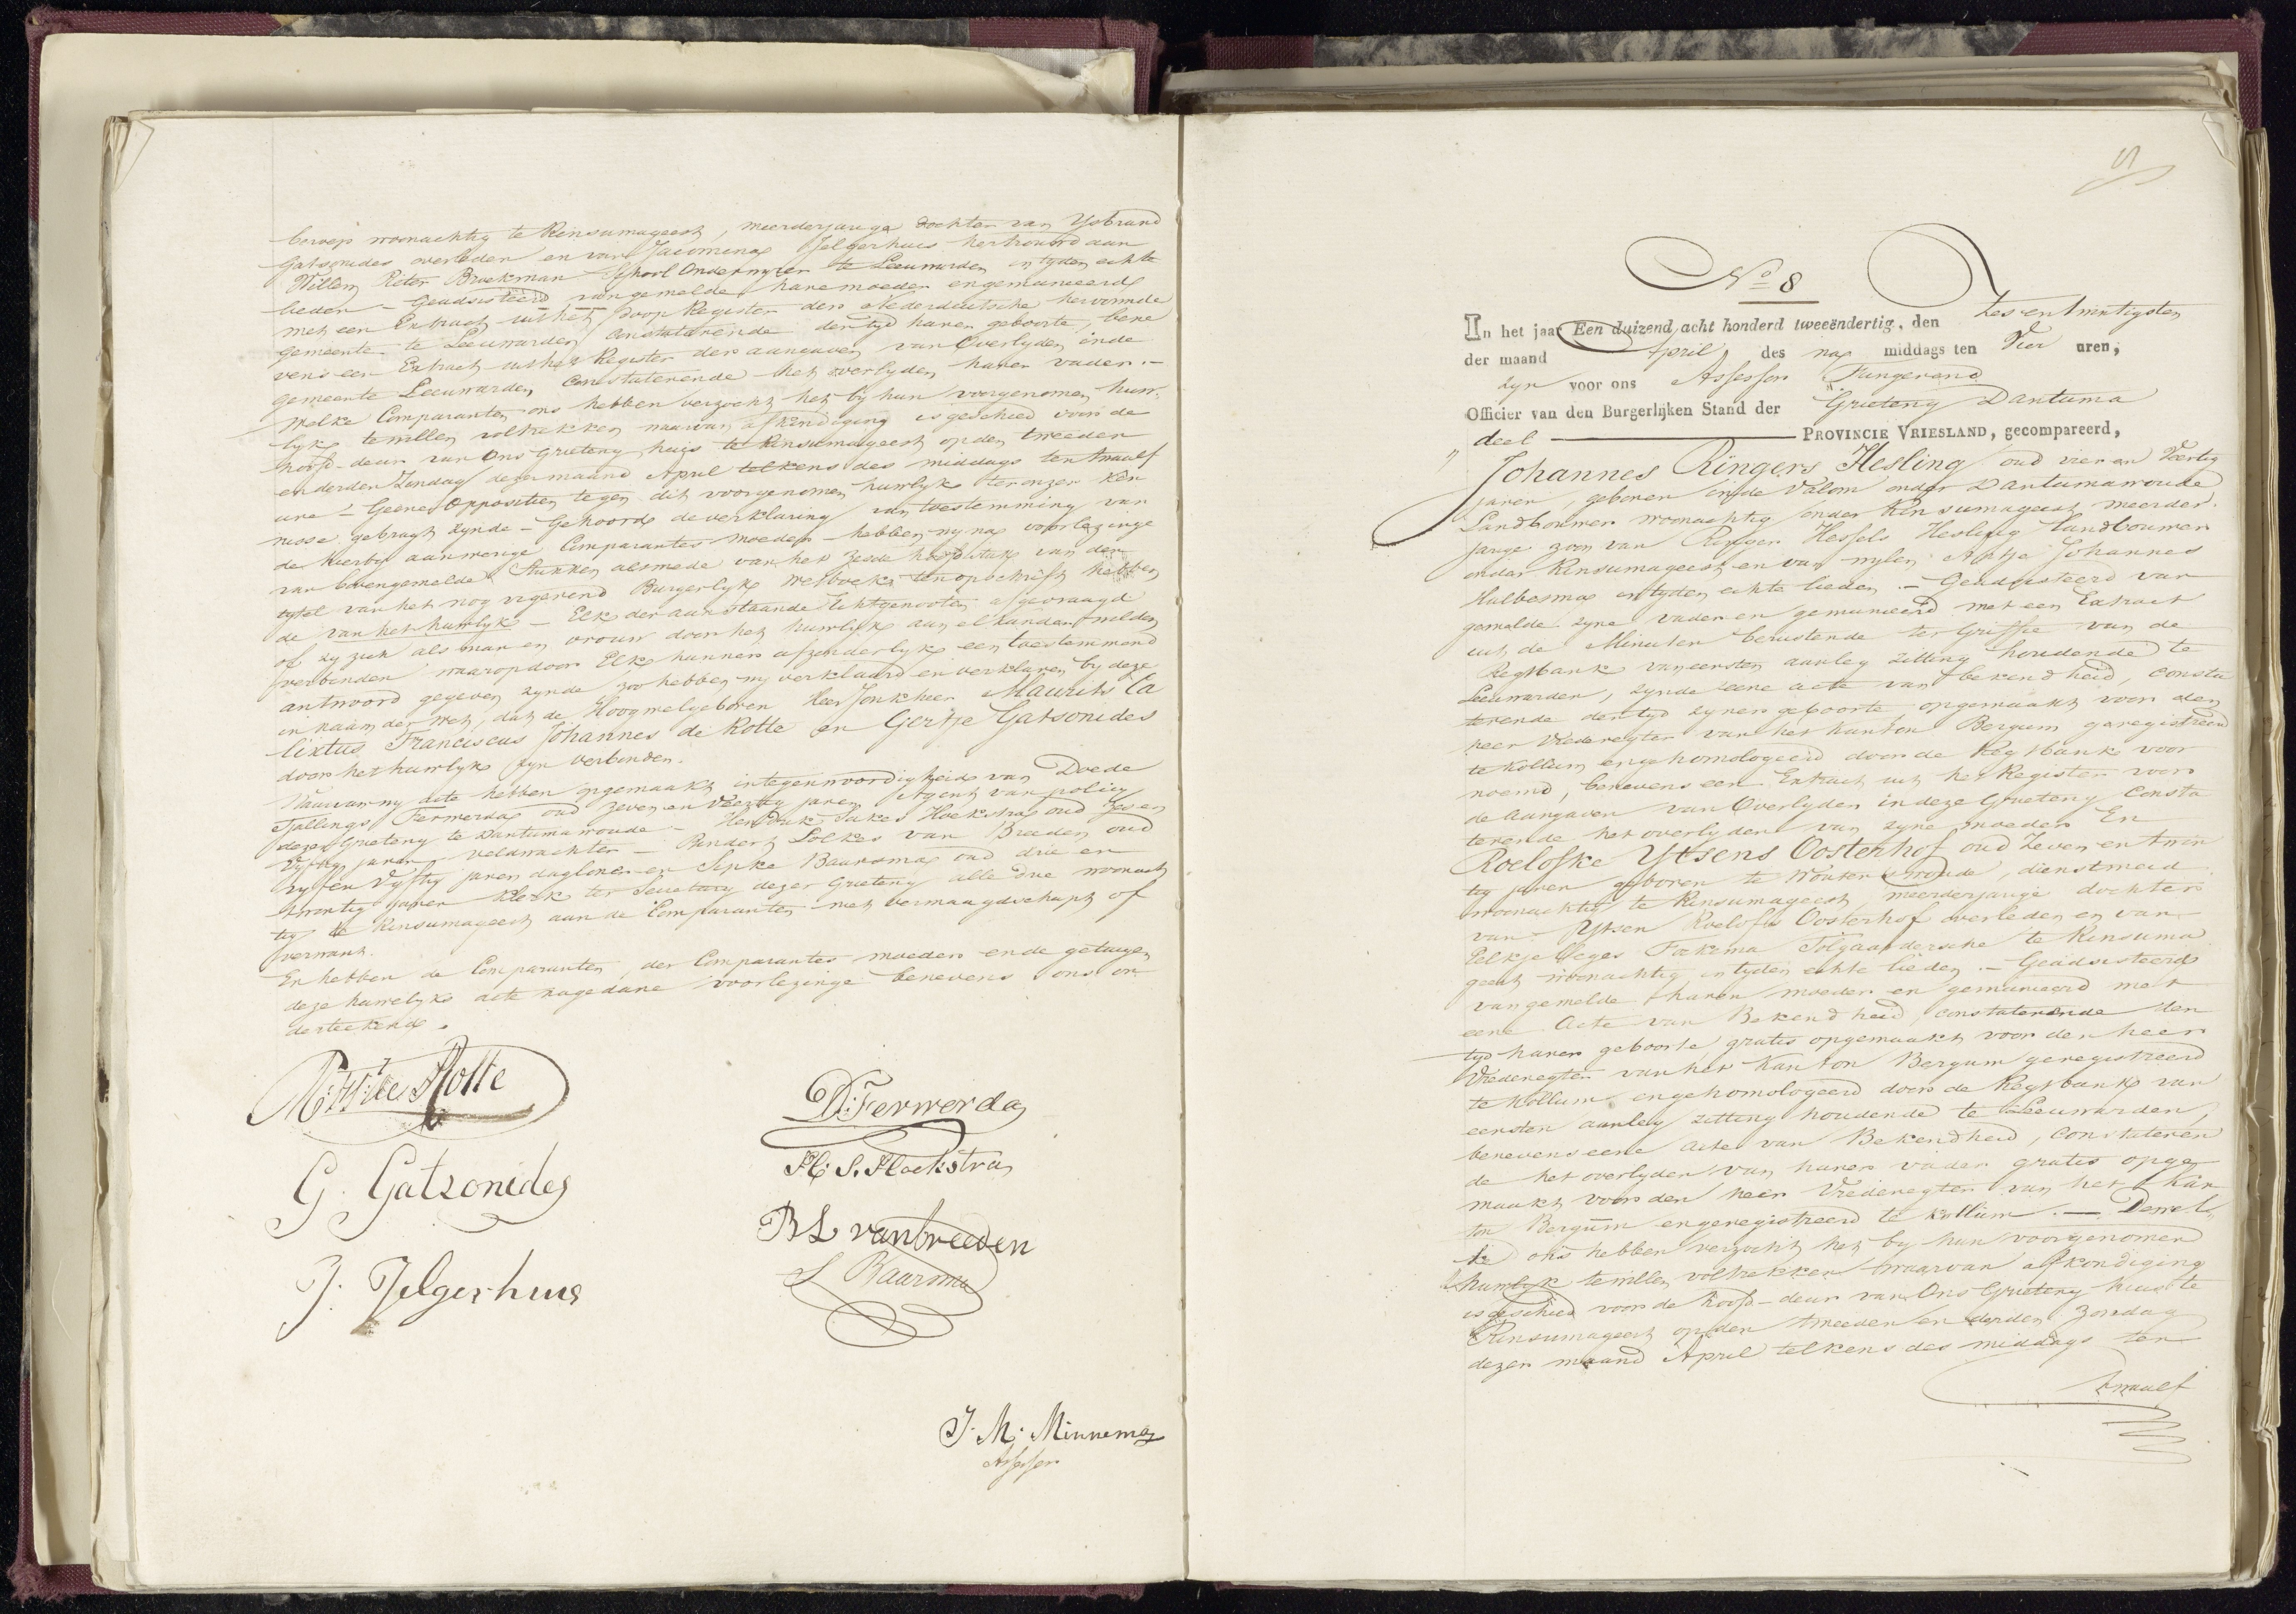 beroep woonachtig te Rinsumageest, meerderjarige dochter van Ysbrand
Gatsonides overleden en van Jacomina Jelgerhuis hertrouwd aan
Willem Pieter Broekman School Onderwyzer te Leeuwarden in tyden echte
lieden – Geadsisteerd van gemelde hare moeder en gemunieerd
met een Extract uit het Doop Register der Nederduitsche hervormde
gemeente te Leeuwarden constaterende den tyd harer geboorte, bene
vens een Extract uit het Register der aangaven van Overlyden in de
gemeente Leeuwarden, Constaterende het overlyden harer vader. –
Welke Comparanten ons hebben verzocht het by hun voorgenomen huw-
lyk te willen voltrekken waarvan afkondiging is geschied voor de
hoofd-deur van Ons Grieteny huis te Rinsumageest op den tweeden
en derden Zondag dezer maand April telkens des middags ten twaalf
ure – Geene Oppositien tegen dit voorgenomen huwlyk ter onzer ken
nisse gebragt zynde – Gehoord de verklaring van toestemming van
de hierby aanwezige Comparantes moeder – hebben wy na voorlezinge
van bovengemelde Stukken alsmede van het zesde hoofdstuk van den
tytel van het nog vigerend Burgerlyk Wetboek ten opschrift hebben
de van het huwlyk – Elk der aanstaande Echtgenooten afgevraagd
of zy zich als man en vrouw door het huwlyk aan elkander wilden
verbinden waarop door Elk hunner afzonderlyk een toestemmend
antwoord gegeven zynde zoo hebben wy verklaard en verklaren by deze
in naam der wet, dat de Hoogwelgeboren Heer Jonkheer Maurits Ca
lixtus Franciscus Johannes de Rotte en Gertje Gatsonides
door het huwlyk zyn verbonden.
Waarvan wy acte hebben opgemaakt in tegenwoordigheid van Doede
Tjallings Ferwerda oud zeven en Veertig jaren Agent van policy
dezer Grieteny te Dantumawoude – Hendrik Sakes Hoekstra oud zes en
Vyftig jaren veldwachter – Rindert Lolkes van Breeden oud
vyf en Vyftig jaren daglooner en Sipke Baarsma oud drie en
twintig jaren klerk ter Secretary dezer Grieteny alle drie woonach
tig te Rinsumageest aan de Comparanten niet vermaagdschapt of
verwant.
En hebben de Comparanten, der Comparantes moeder en de getuigen
deze huwelyks acte na gedane voorlezinge benevens ons on
derteekend.
de Rotte
G. Gatzonides
J. Jelgerhuis
D. Ferwerda
H. S. Hoekstra
R L van breeden
S Baarsma
J. M. Minnema
Assessor
No 8
In het jaar Een duizend acht honderd tweeëndertig, den Zes en twintigsten
der maand April des na middags ten Vier uren,
zyn voor ons Assessor Fungerend
Officier van den Burgerlijken Stand der Grieteny Dantuma
deel PROVINCIE VRIESLAND, gecompareerd,
Johannes Ringers Hesling oud vier en Veertig
jaren, geboren in de Valom onder Dantumawoude
Landbouwer woonachtig onder Rinsumageest meerder-
jarige zoon van Ringer Hessels Hesling landbouwer
onder Rinsumageest en van wylen Aptje Johannes
Halbesma in tyden echte lieden. – Geadsisteerd van
gemelde zyne vader en gemunieerd met een Extract
uit de Minuten berustende ter Griffie van de
Regtbank van eersten aanleg zitting houdende te
Leeuwarden, zynde eene acte van bekendheid, consta
terende den tyd zyner geboorte opgemaakt voor den
heer Vrederegter van het kanton Bergum geregistreerd
te Kollum en gehomologeerd door de Regtbank voor
noemd, benevens een Extract uit het Register voor
de Aangaven van Overlyden in deze Grieteny Consta
terende het overlyden van zyne moeder En
Roelofke Ytsens Oosterhof oud Zeven en twin
tig jaren geboren te Wouterswoude, dienstmeid
woonachtig te Rinsumageest, meerderjarige dochter
van Ytsen Roelofs Oosterhof overleden en van
Eelkje Feges Fokema Tolgaardersche te Rinsuma
geest woonachtig in tyden echte lieden. – Geadsisteerd
van gemelde haren moeder en gemunieerd met
eene Acte van Bekendheid, constaterende den
tyd harer geboorte gratis opgemaakt voor den heer
Vrederegter van het Kanton Bergum geregistreerd
te Kollum en gehomologeerd door de Regtbank van
eersten aanleg zitting houdende te Leeuwarden,
benevens eene acte van Bekendheid, constateren
de het overlyden van haren vader gratis opge
maakt voor den heer Vrederegter van het Kan
ton Bergum en geregistreerd te Kollum. – Dewel-
ke ons hebben verzocht het by hun voorgenomen
huwlyk te willen voltrekken waarvan afkondiging
is geschied voor de hoofd-deur van Ons Grieteny huis te
Rinsumageest op den tweeden en derden Zondag
dezer maand April telkens des middags ten
twaalf